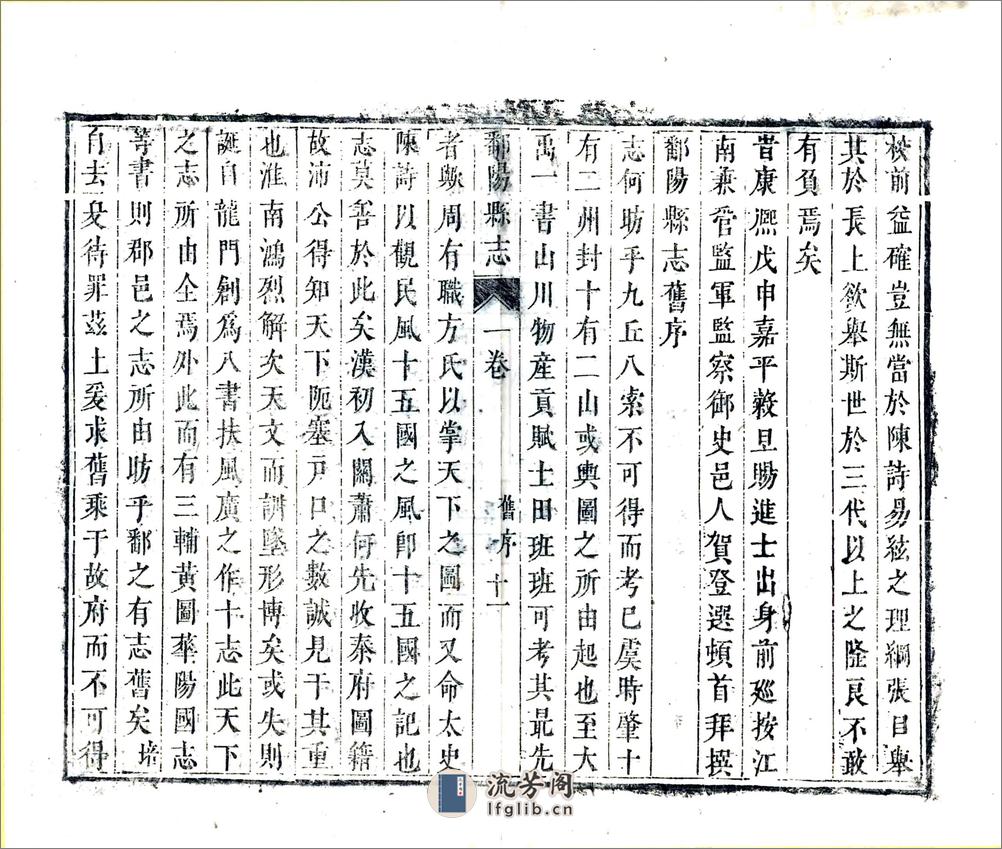 於前益確豈無當於陳詩易絃之理綱張目舉
其於長上欲舉斯世於三代以上之隆良不敢
有負焉矣
昔康熙戊申嘉平穀旦賜進士出身前廵按江
南兼管監軍監察御史邑人賀登選頓首拜撰
鄱陽縣志舊序
志何昉乎九丘八索不可得而考已虞時肇十
有二州封十有二山或輿圖之所由起也至大
禹一書山川物産貢賦土田班班可考其最先
鄱陽縣志
一卷
舊序
十一
者與周有職方氏以掌天下之圖而又命太史
陳詩以觀民風十五國之風卽十五國之記也
志莫善於此矣漢初入關蕭何先收秦府圖籍
故沛公得知天下阨塞戸口之數誠見于其重
也淮南鴻烈解次天文而訓墜形博矣或失則
誕自龍門創爲八書扶風廣之作十志此天下
之志所由全焉外此而有三輔黃圖華陽國志
等書則郡邑之志所由昉乎鄱之有志舊矣培
自去夏待罪茲土爰求舊乘于故府而不可得
流芳阁
lfglib.cn